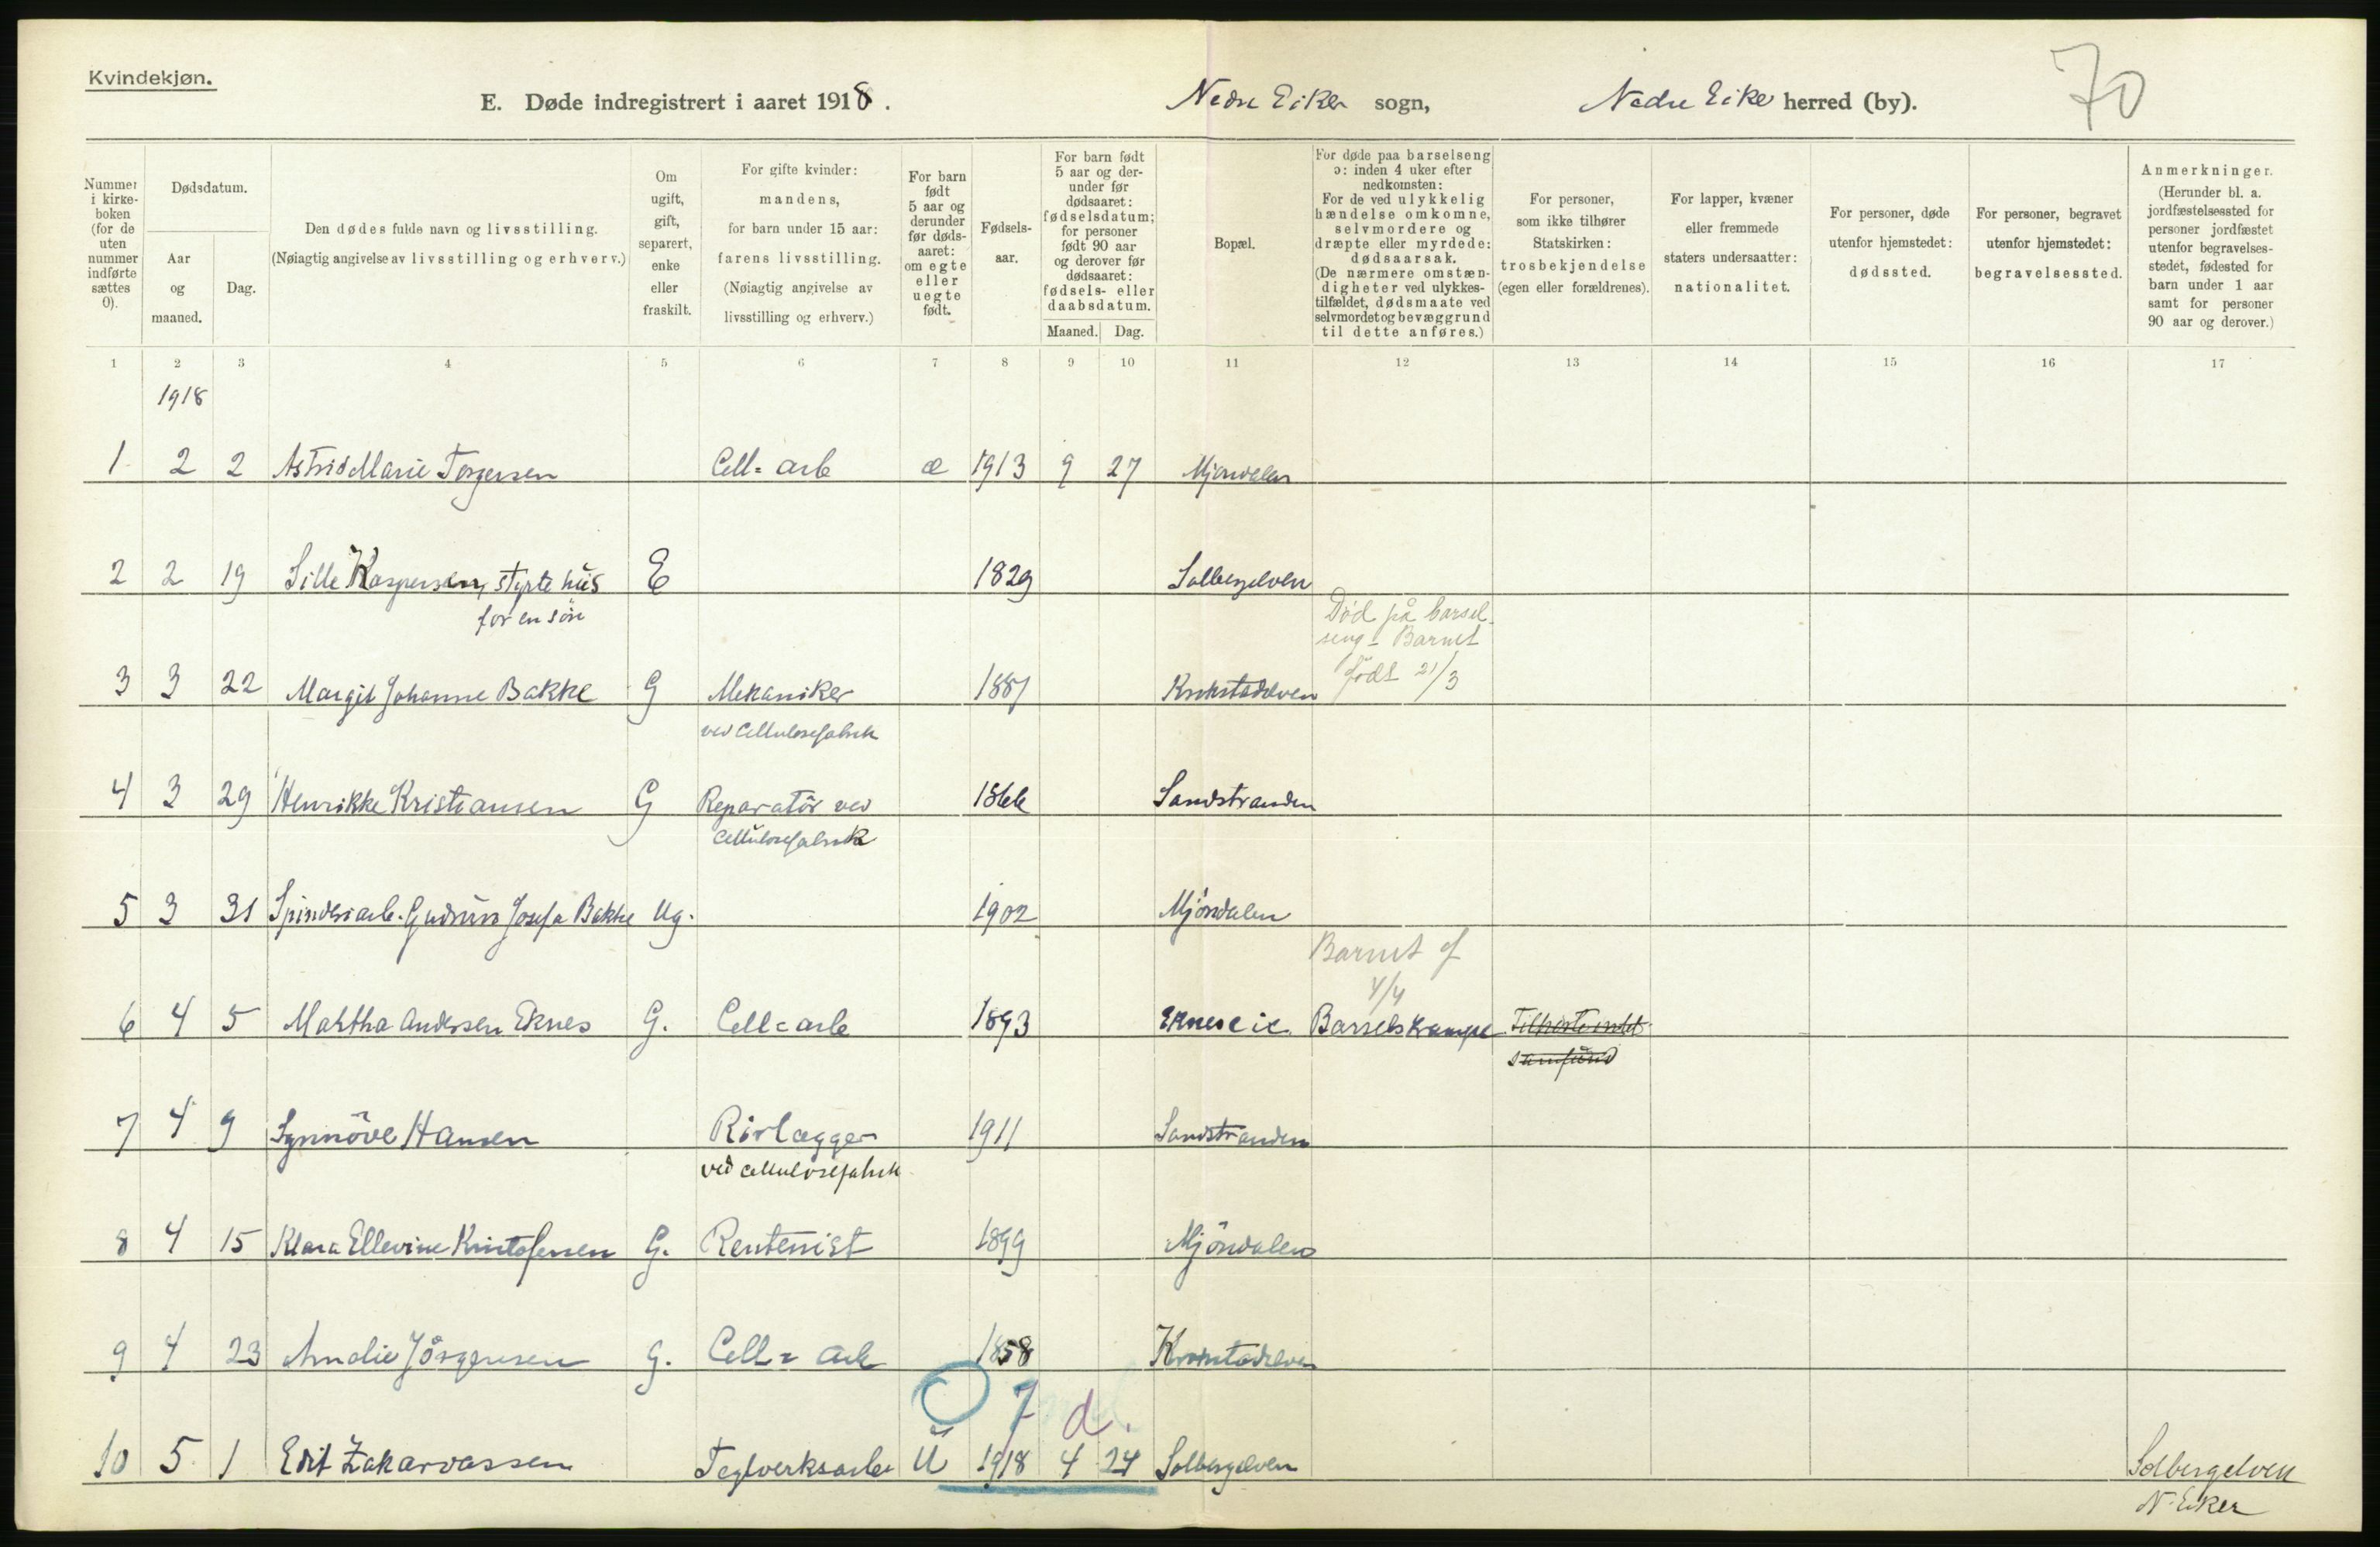 Kvindekjøn.
70
E. Døde indregistrert i aaret 1918. Nedre Eiker sogn, Nedre Eiker herred (by).
Nummer i kirkeboken (for de uten nummer indførte sættes 0).
Dødsdatum.
Aar og maaned.
Dag.
Den dødes fulde navn og livsstilling.
(Nøiagtig angivelse av livsstilling og erhverv.)
Om ugift, gift, separert, enke eller fraskilt.
For gifte kvinder: mandens, for barn under 15 aar: farens livsstilling. (Nøiagtig angivelse av livsstilling og erhverv.)
For barn født 5 aar og derunder før dødsaaret: om egte eller uegte født.
Fødselsaar.
For barn født 5 aar og derunder før dødsaaret: fødselsdatum; for personer født 90 aar og derover før dødsaaret: fødsels- eller daabsdatum.
Maaned. Dag.
Bopæl.
For døde paa barselseng ɔ: inden 4 uker efter nedkomsten: For de ved ulykkelig hændelse omkomne, selvmordere og dræpte eller myrdede: dødsaarsak. (De nærmere omstændigheter ved ulykkestilfældet, dødsmaate ved selvmordet og bevæggrund til dette anføres.)
For personer, som ikke tilhører Statskirken: trosbekjendelse (egen eller forældrenes).
For lapper, kvæner eller fremmede staters undersaatter: nationalitet.
For personer, døde utenfor hjemstedet: dødssted.
For personer, begravet utenfor hjemstedet: begravelsessted.
Anmerkninger. (Herunder bl. a. jordfæstelsessted for personer jordfæstet utenfor begravelsesstedet, fødested for barn under 1 aar samt for personer 90 aar og derover.)
1 2 3 4 5 6 7 8 9 10 11 12 13 14 15 16 17
1918
1 2 2 Astrid Marie Torgersen Cell= arb æ 1913 9 27 Mjøndalen
2 2 19 Sille Kaspersen, styrte hus E 1829 Solbergelven
for en sön
Död på barsel-
seng - Barnet
født 21/3
3 3 22 Margit Johanne Bakke G Mekaniker 1887 Krokstadelven
ved Cellulosefabrik
4 3 29 Henrikke Kristiansen G Reparatör ved 1866 Sandstranden
Cellulosefabrik
5 3 31 Spinderiarb. Gudrun Josefa Bakke Ug. 1902 Mjöndalen
Barnet f
4/4
6 4 5 Mahtha Andersen Eknes G. Cell= arb 1893 Eknes Barselskrampe
samfund
7 4 9 Synnöve Hansen Rörlægger 1911 Sandstranden
ved cellulosefabrik
8 4 15 Klara Ellevine Kristofersen G. Rentenist 1899 Mjöndalen
9 4 23 Amalie Jörgensen G. Cell= arb 1858 Krokstadelven
7 d.
10 5 1 Edit Zakariassen Teglverksarb U 1918 4 24 Solbergelven Solbergelven
N. Eiker